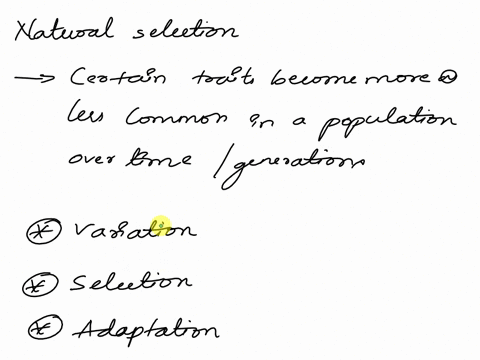 Natural selection
→ Certain traits become more or
less common in a population
over time / generations
* Variation
* Selection
* Adaptation